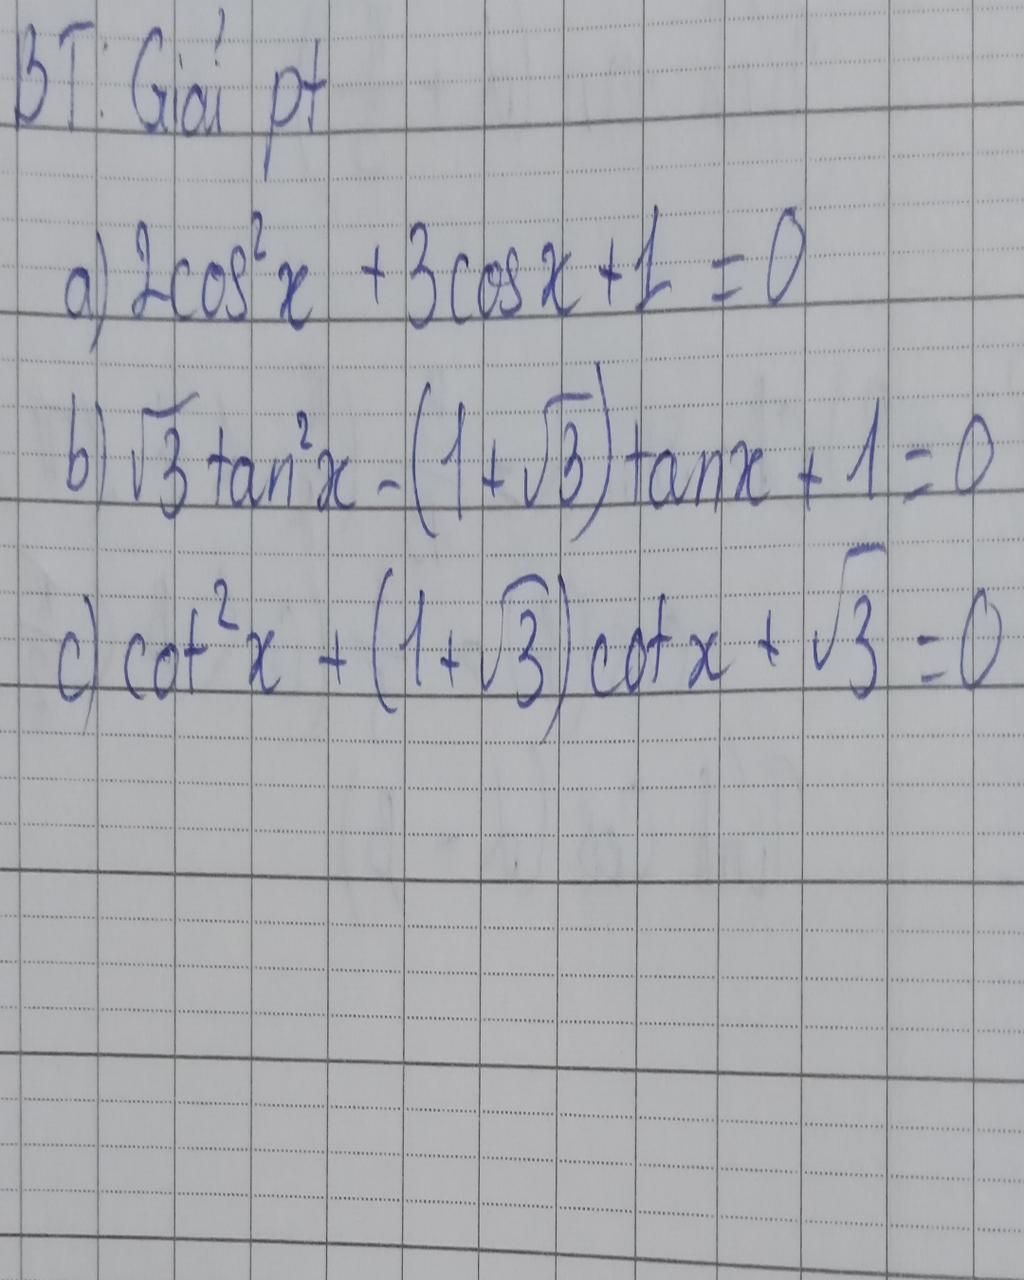 BT: Giải pt
a) 2cos²x + 3cosx + 1 = 0
b) √3 tan²x - (1+√3) tanx + 1 = 0
c) cot²x + (1+√3) cotx + √3 = 0